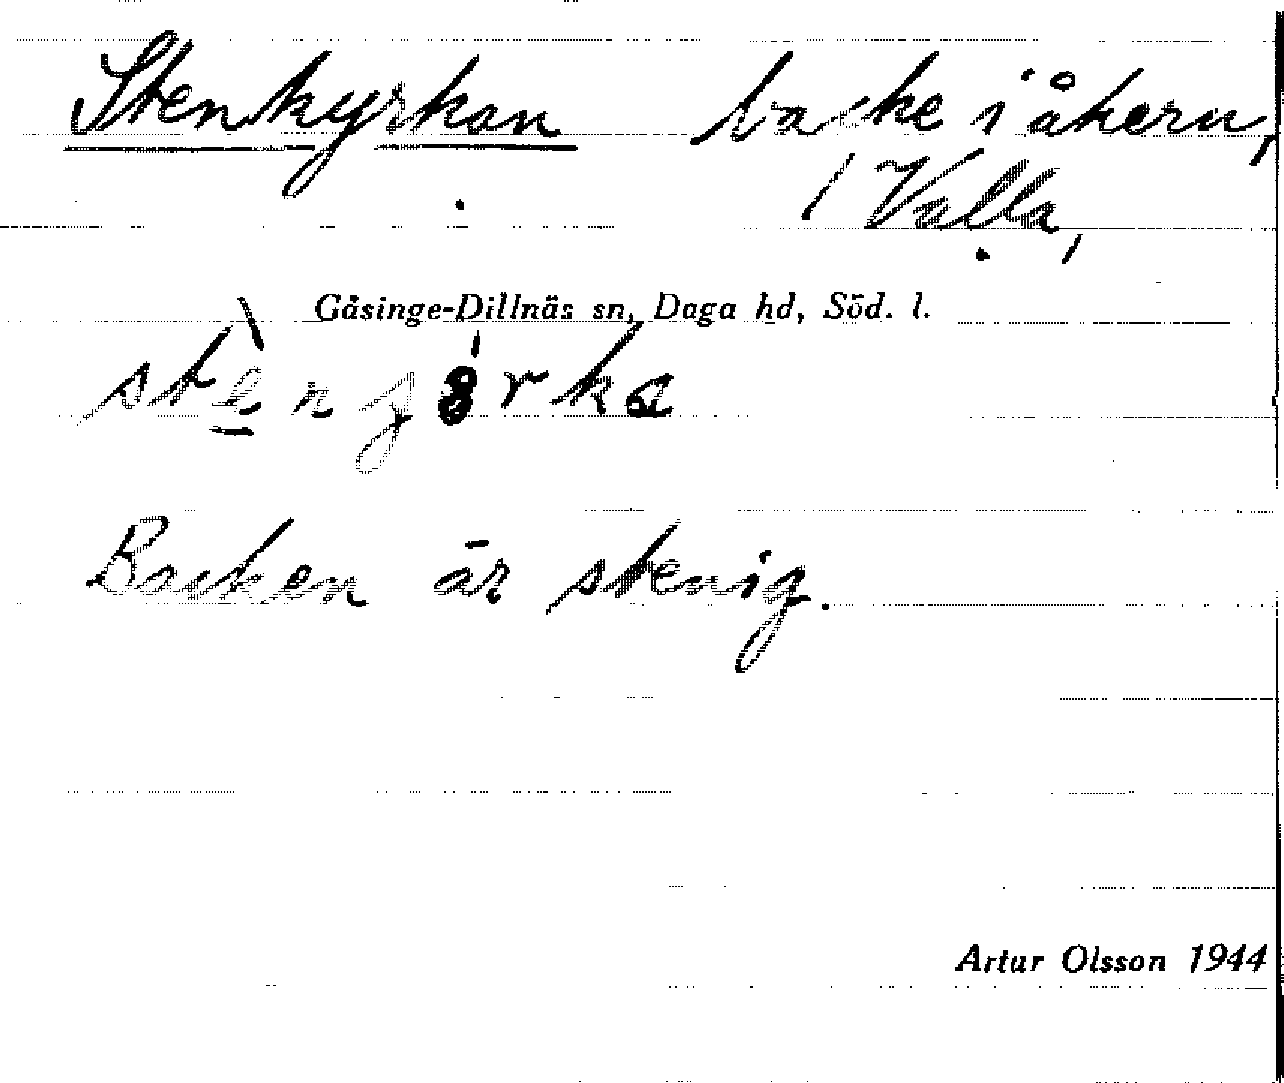 Stenkyrkan backe i åkern,
/ Valla,
Gåsinge-Dillnäs sn, Daga hd, Söd. l.
Backen är stenig.
Artur Olsson 1944